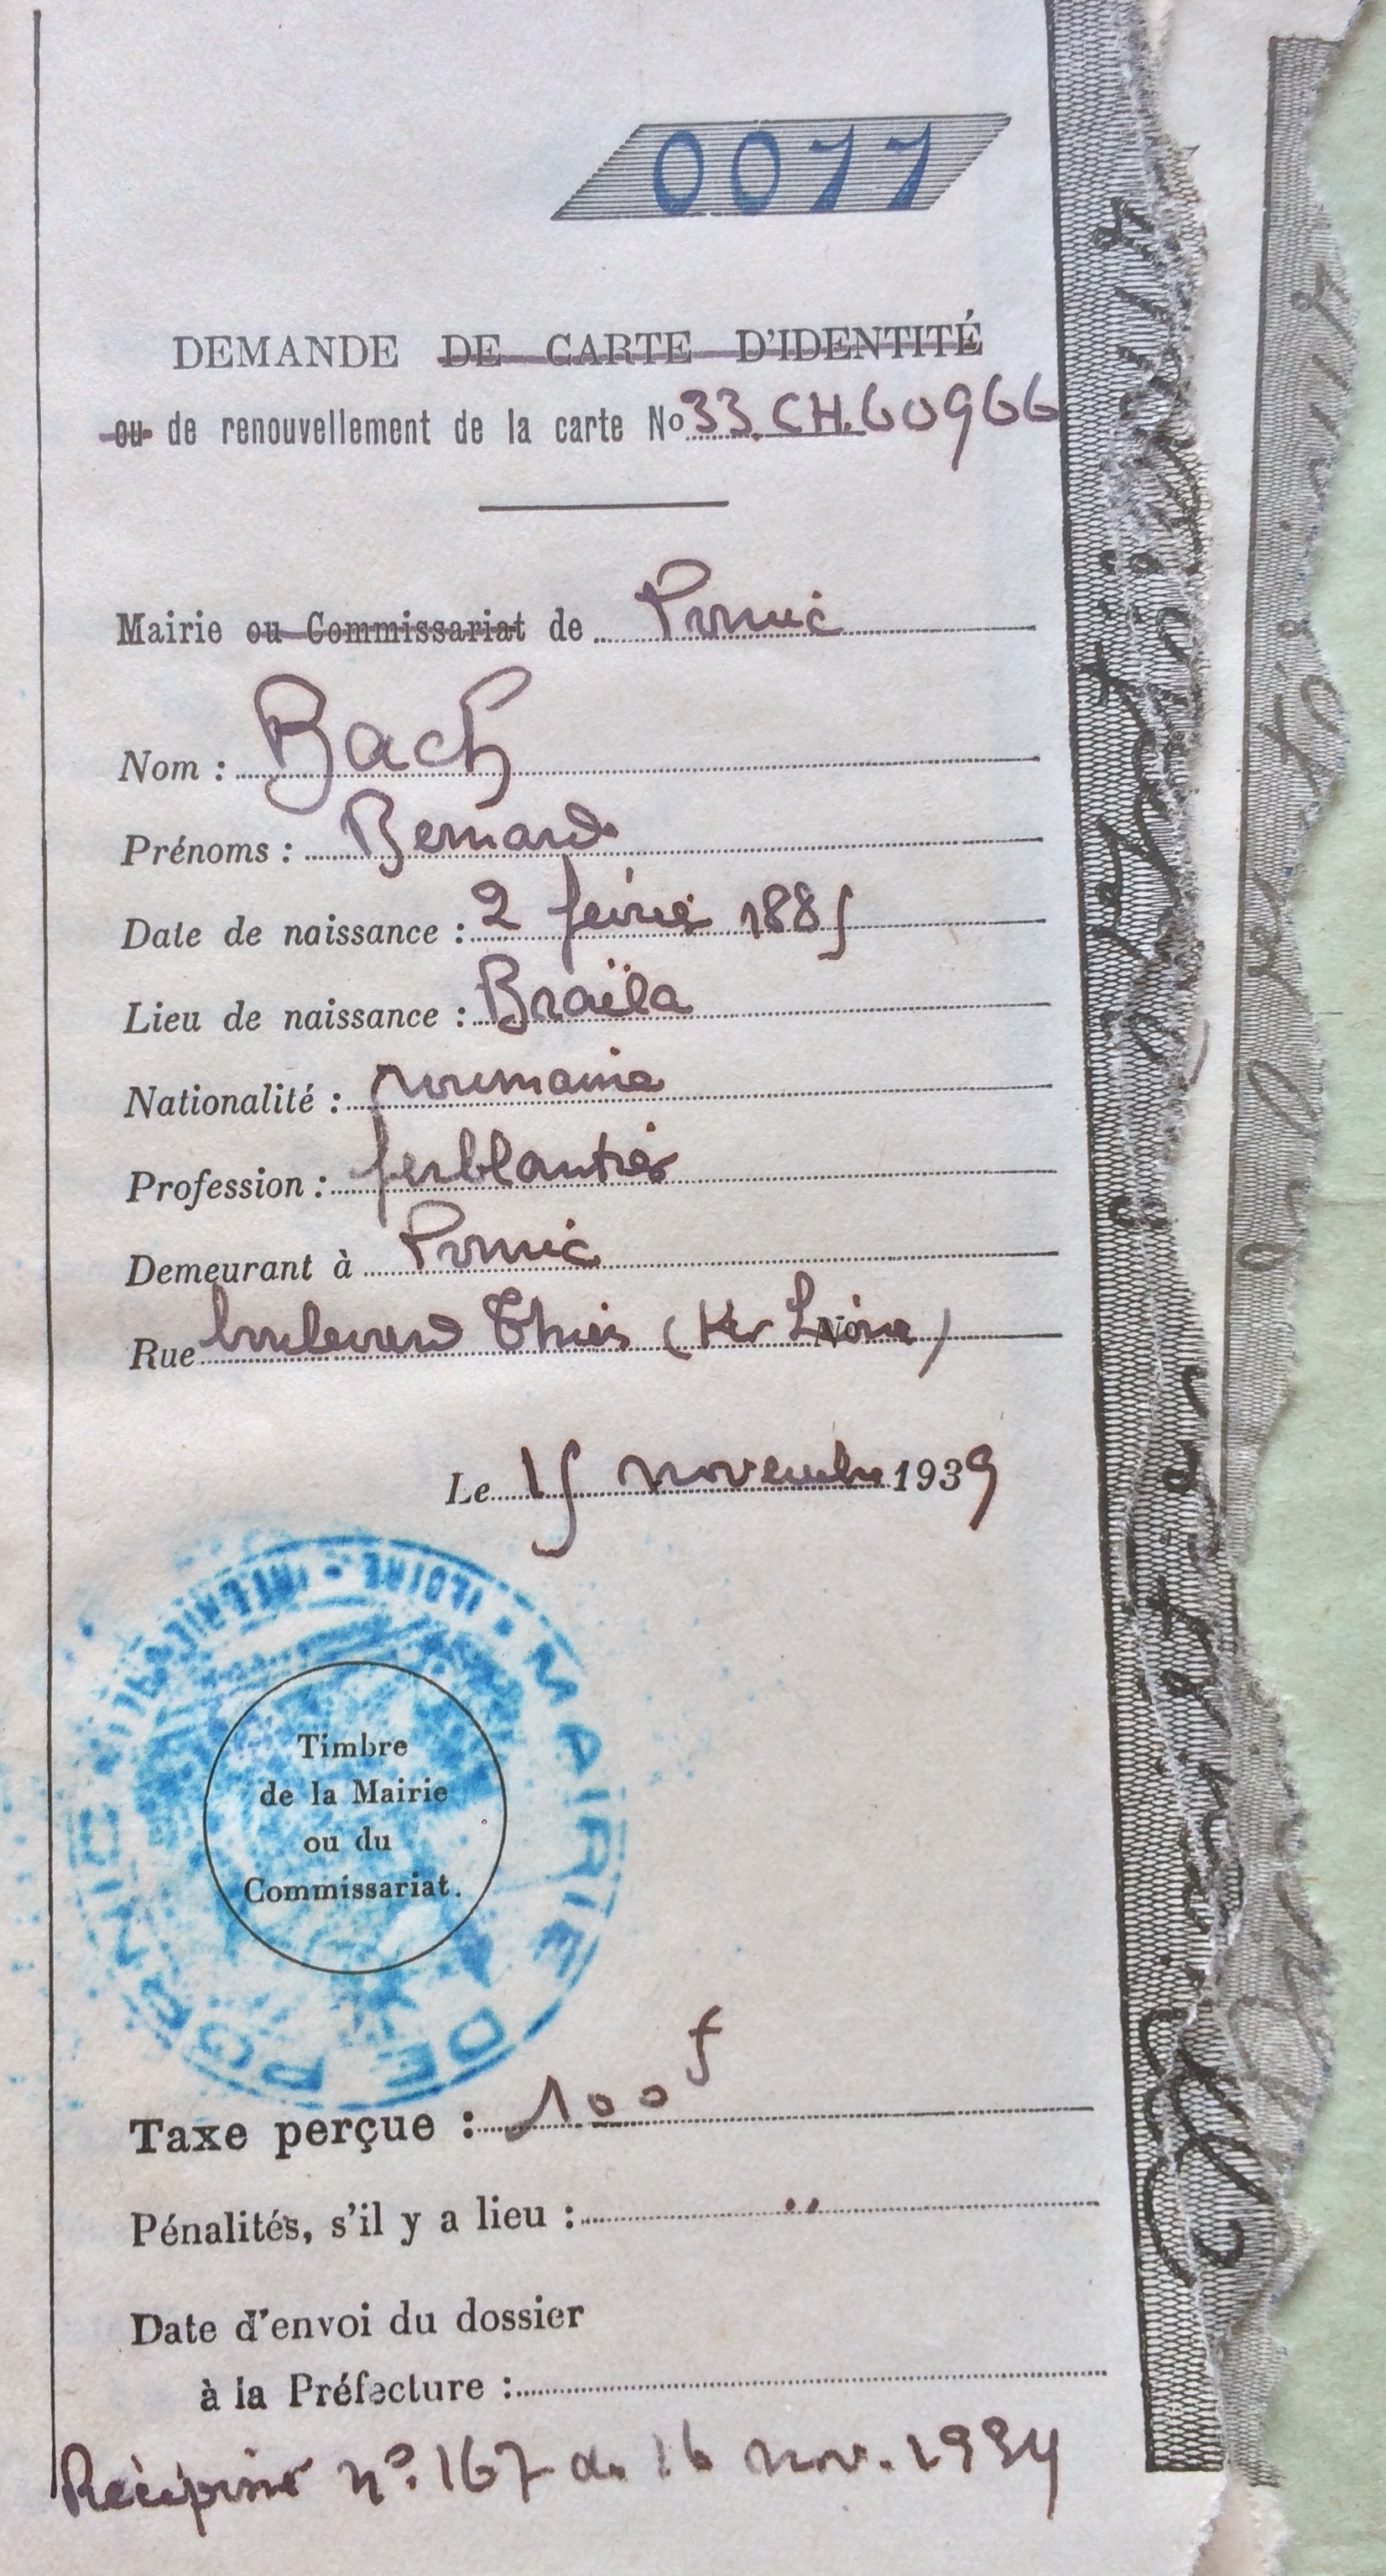 0077
DEMANDE DE CARTE D'IDENTITÉ
ou de renouvellement de la carte No 33.CH.60966
Mairie ou Commissariat de Pornic
Nom : Bach
Prénoms : Bernard
Date de naissance : 2 février 1885
Lieu de naissance : Braïla
Nationalité : roumaine
Profession : ferblantier
Demeurant à Pornic
Rue boulevard Thiers (Ker
Le 15 novembre 1939
MAIRIE DE PORNIC
Timbre
de la Mairie
ou du
Commissariat.
Taxe perçue : 100 f
Pénalités, s'il y a lieu : "
Date d'envoi du dossier
à la Préfecture :
Récépissé n° 167 du 16 nov. 1939